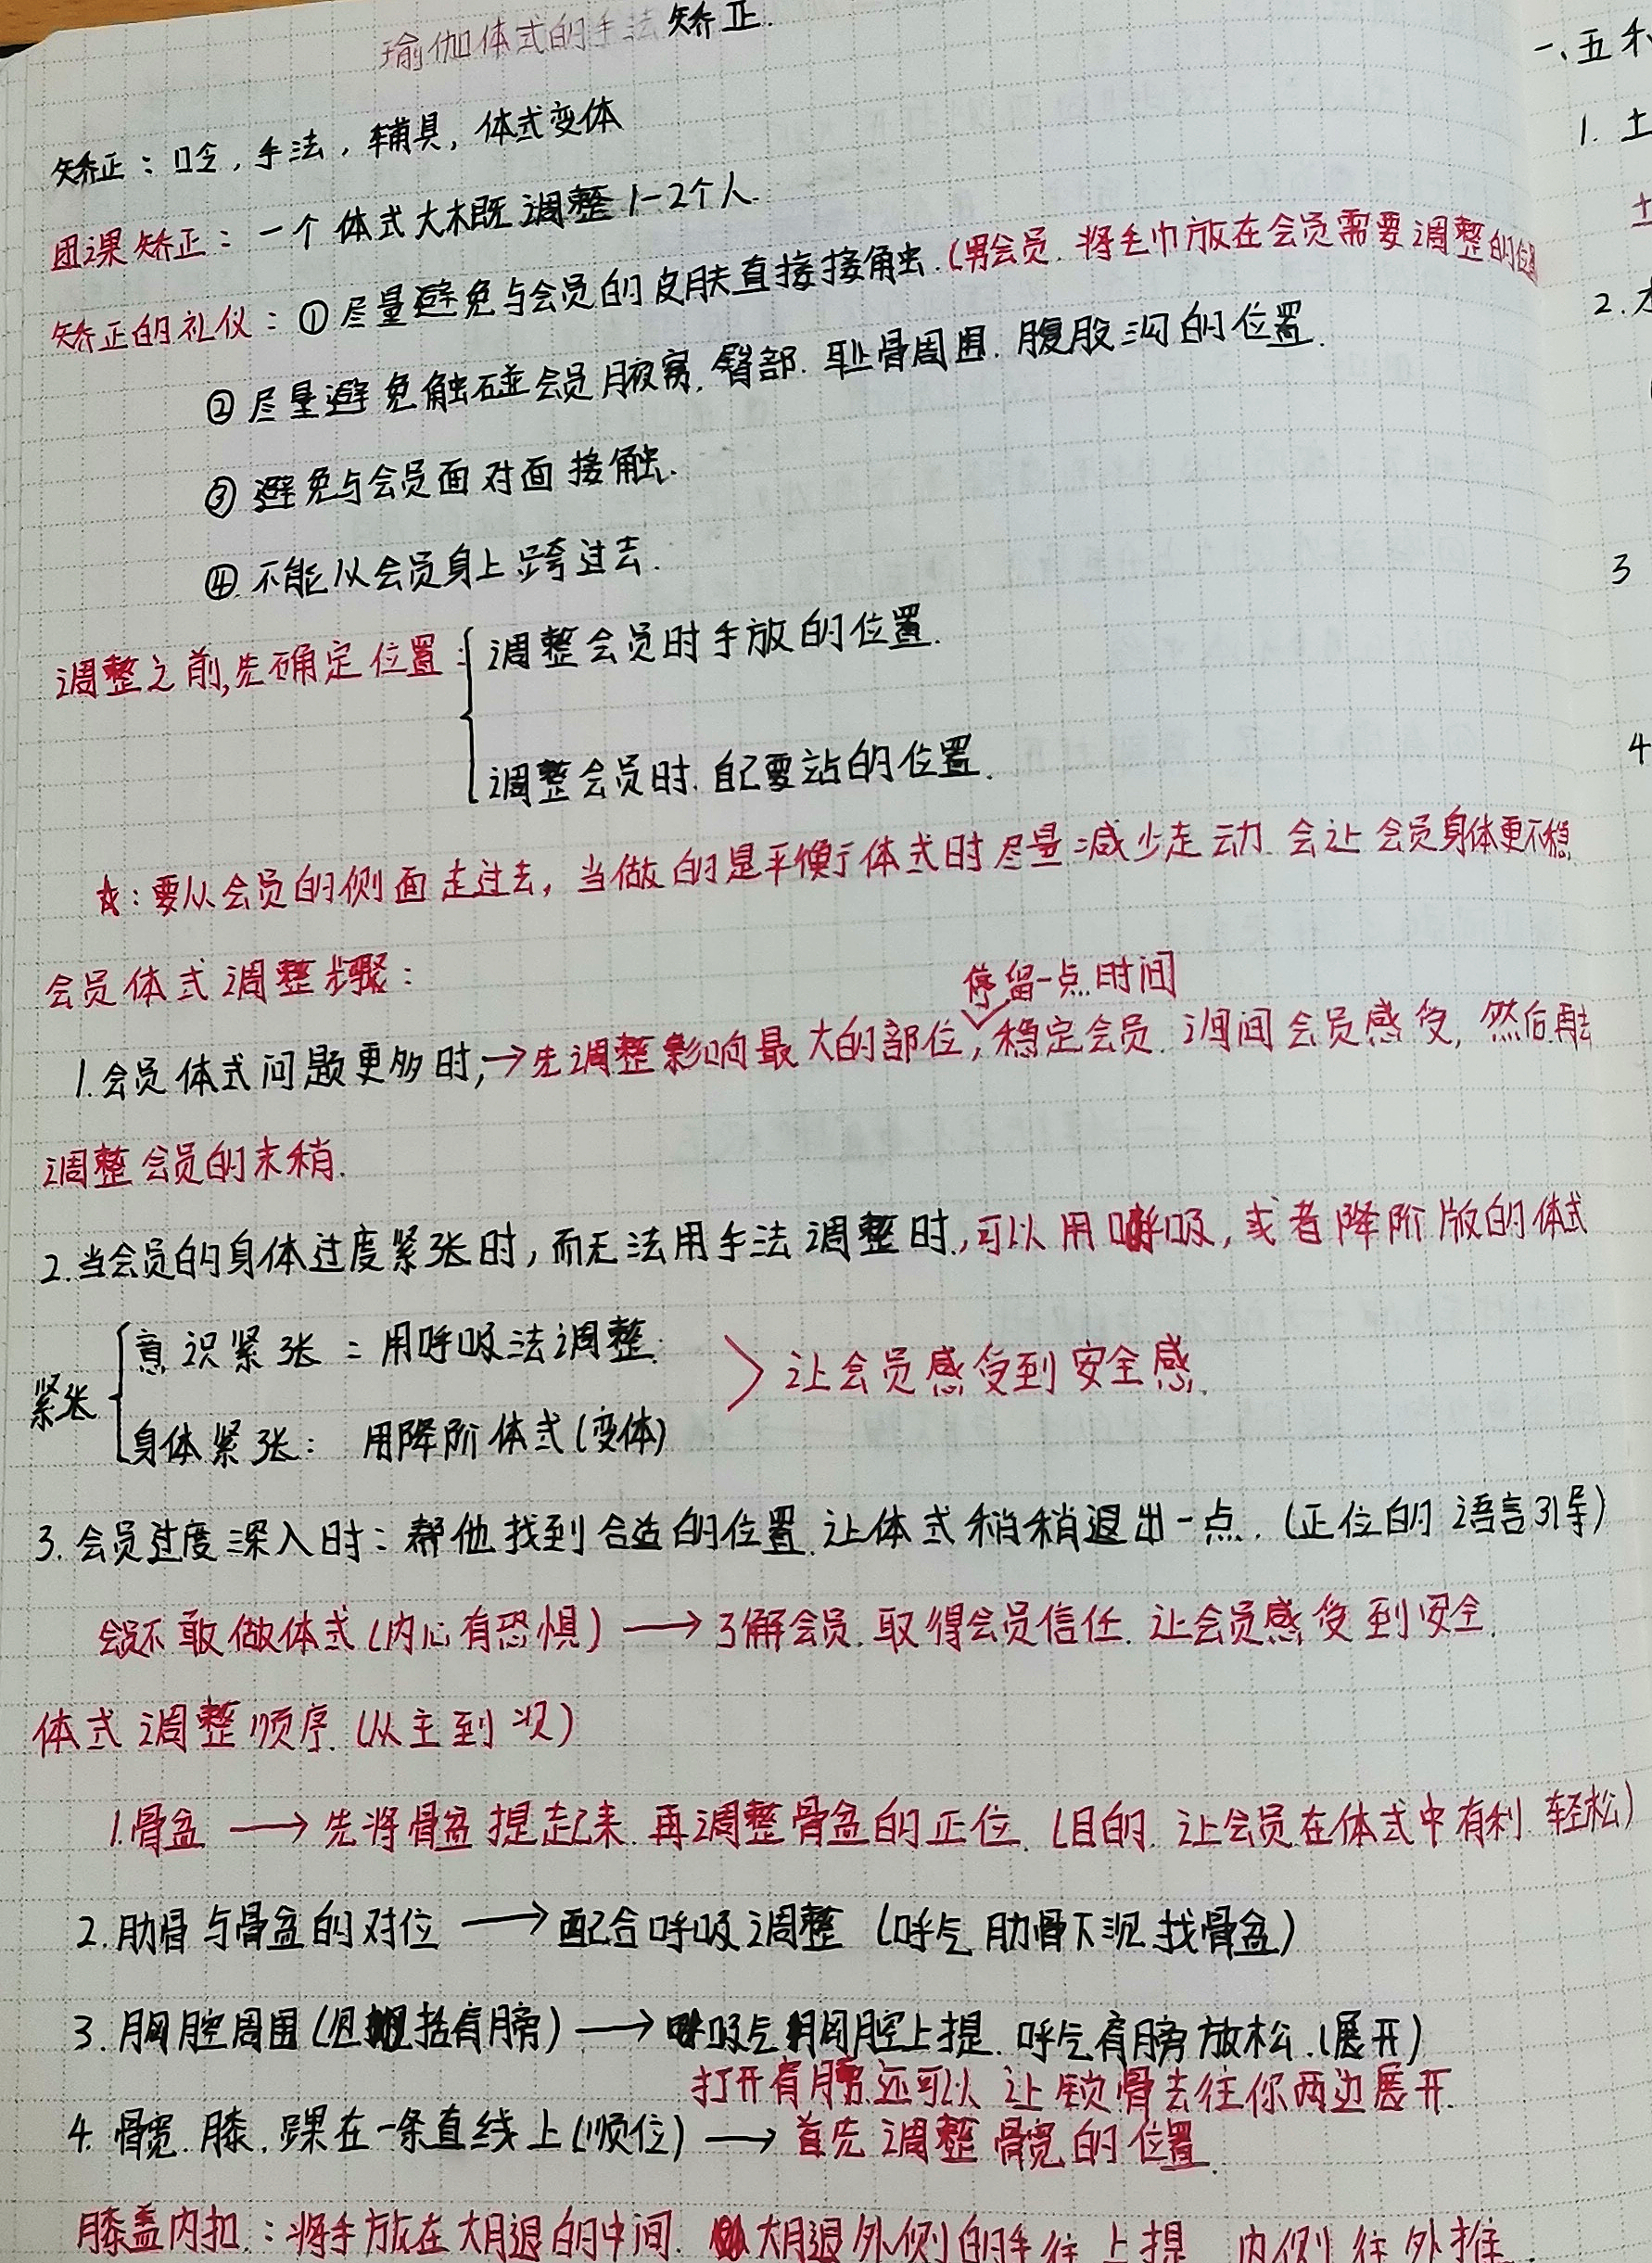 瑜伽体式的手法矫正.
矫正：口令，手法，辅具，体式变体
团课矫正：一个体式大概调整1-2个人.
矫正的礼仪：①尽量避免与会员的皮肤直接接触.(男会员.将毛巾放在会员需要调整的位置
②尽量避免触碰会员腋窝.臀部.耻骨周围.腹股沟的位置.
③避免与会员面对面接触.
④.不能从会员身上跨过去.
调整之前,先确定位置：{调整会员时手放的位置.
调整会员时.自己要站的位置.
☆：要从会员的侧面走过去，当做的是平衡体式时尽量减少走动.会让会员身体更不稳
会员体式调整步骤：
停留一点时间
1.会员体式问题更多时,→先调整影响最大的部位,稳定会员.询问会员感受,然后再去
调整会员的末稍.
2.当会员的身体过度紧张时,而无法用手法调整时,可以用呼吸,或者降阶版的体式
紧张{意识紧张：用呼吸法调整.
身体紧张：用降阶体式(变体)
>让会员感受到安全感.
3.会员过度深入时：帮他找到合适的位置.让体式稍稍退出一点.(正位的语言引导)
会员不敢做体式(内心有恐惧)→了解会员.取得会员信任.让会员感受到安全.
体式调整顺序.(从主到次)
1.骨盆→先将骨盆提起来.再调整骨盆的正位.(目的.让会员在体式中有利.轻松)
2.肋骨与骨盆的对位→配合呼吸调整(呼气肋骨下沉.找骨盆)
3.胸腔周围(包括肩膀)→吸气胸腔上提.呼气肩膀放松.(展开)
打开肩膀还可以让锁骨去往你两边展开.
4.髋.膝.踝在一条直线上(顺位)→首先调整髋的位置.
膝盖内扣：将手放在大腿的中间.大腿外侧的手往上提.内侧往外推.
一、五
1.土
2.
3
4